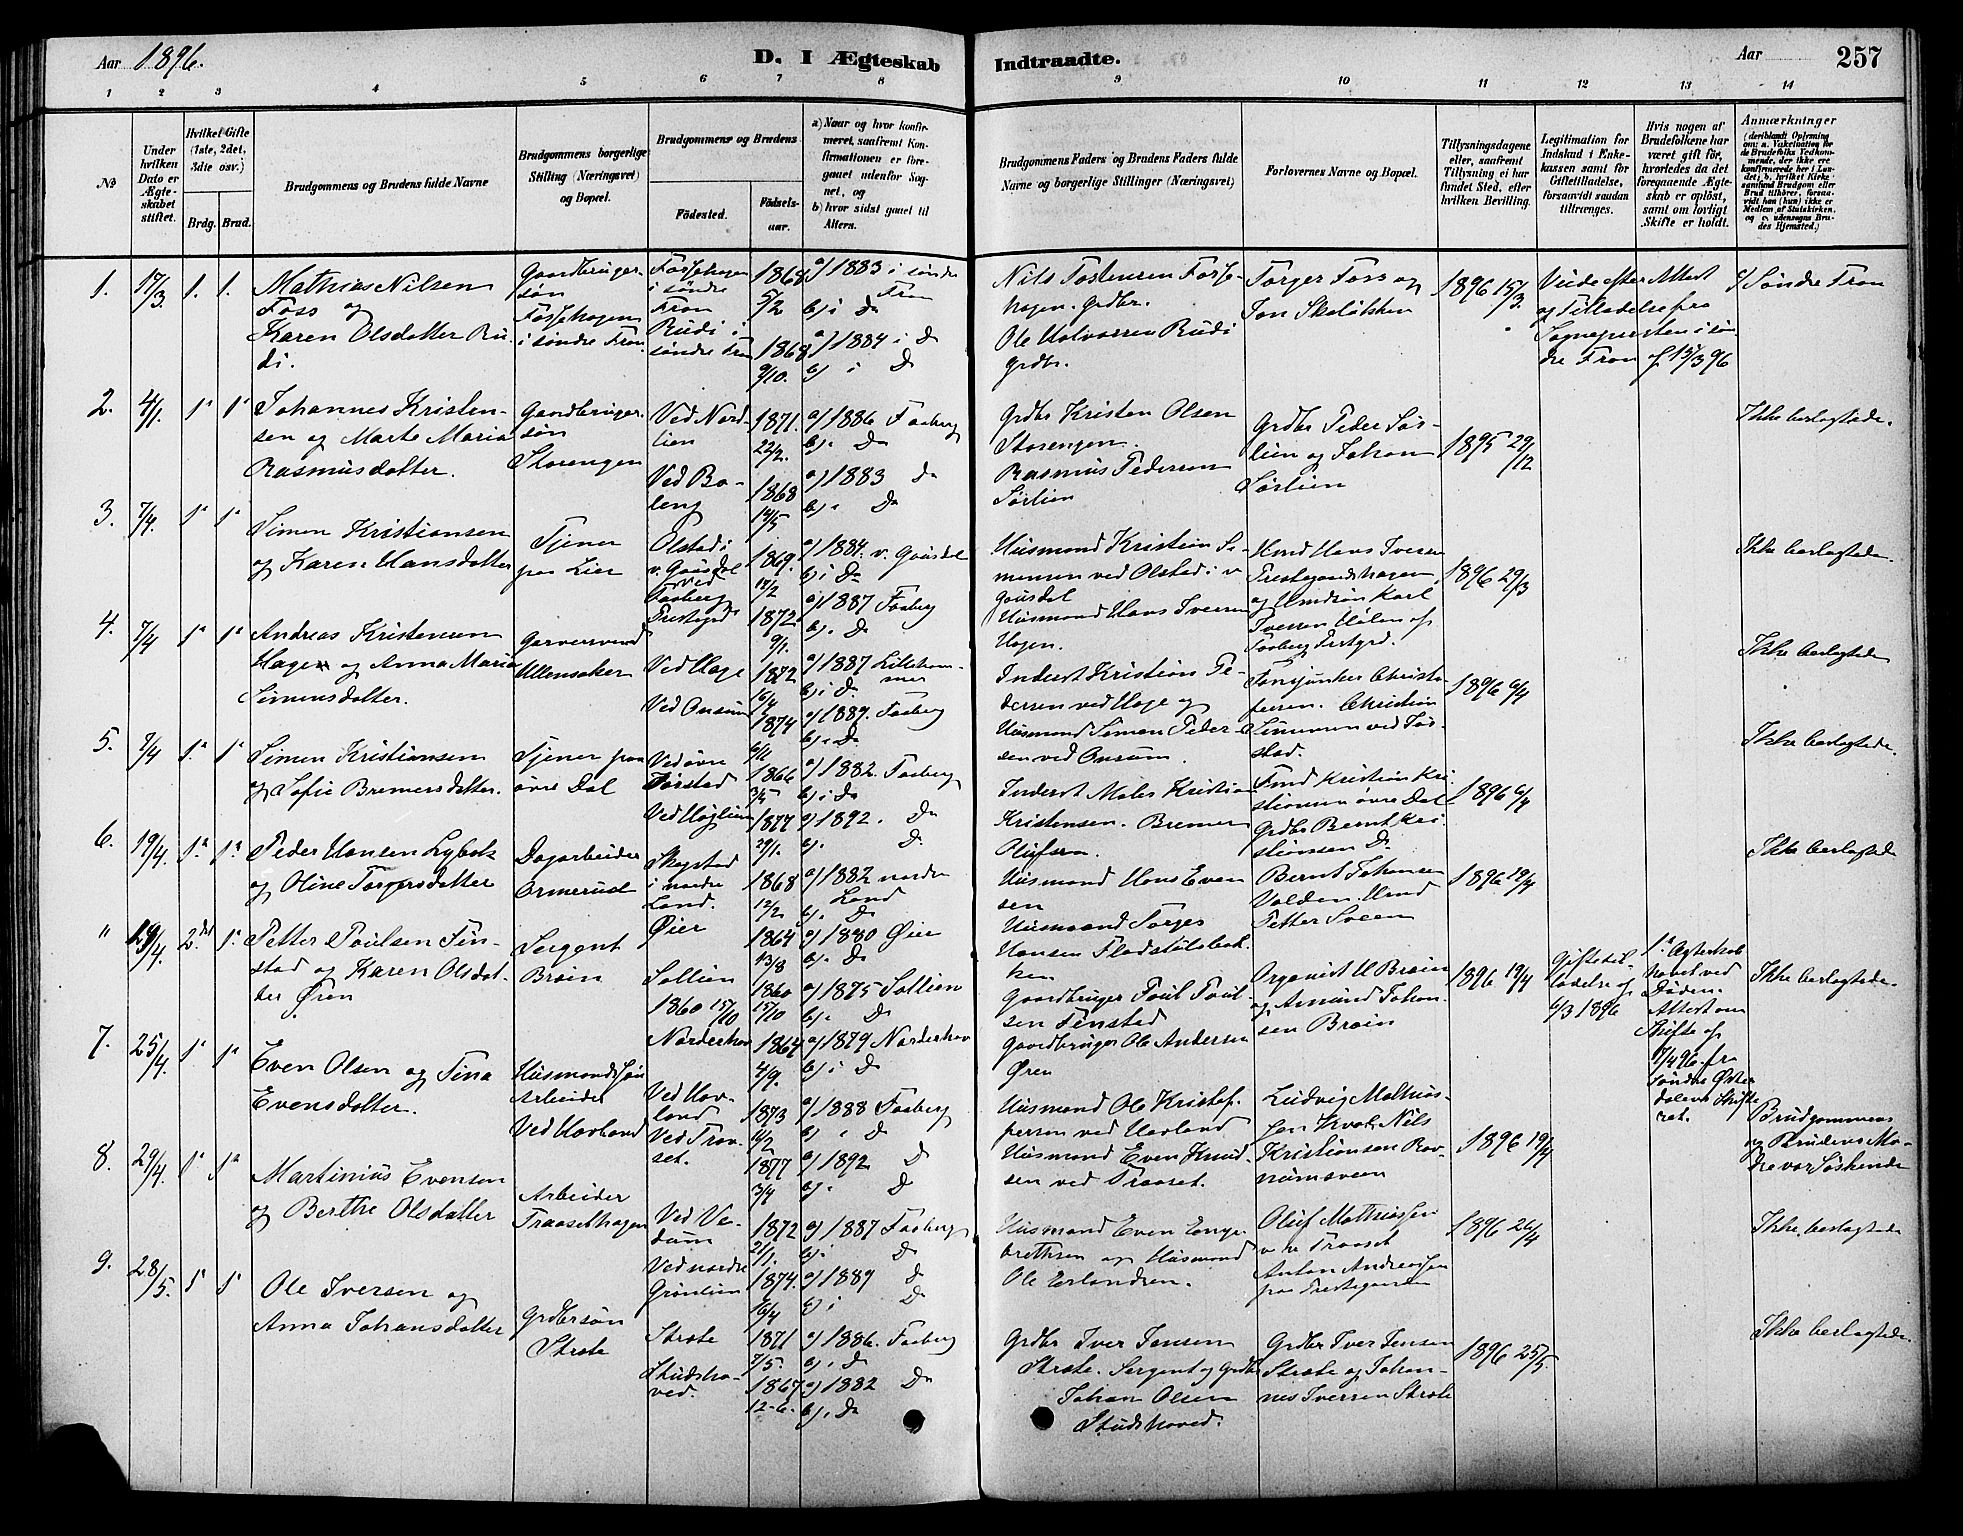 Aar 1896.
D. I Ægteskab Indtraadte.
Aar
257
1 2 3 4 5 6 7 8 9 10 11 12 13 14
No
Under hvilken Dato er Ægteskabet stiftet.
Hvilket Gifte (1ste, 2det, 3dte osv.)
Brdg. Brud.
Brudgommens og Brudens fulde Navne
Brudgommens borgerlige Stilling (Næringsvei) og Bopæl.
Brudgommens og Brudens
Fødested.
Fødselsaar.
a) Naar og hvor konfirmeret, saafremt Konfirmationen er foregaaet udenfor Sognet, og
b) hvor sidst gaaet til Alters.
Brudgommens Faders og Brudens Faders fulde Navne og borgerlige Stillinger (Næringsvei)
Forlovernes Navne og Bopæl.
Tillysningsdagene eller, saafremt Tillysning ei har fundet Sted, efter hvilken Bevilling.
Legitimation for Indskud i Enkekassen samt for Giftetilladelse, forsaavidt saadan tiltrænges.
Hvis nogen af Brudefolkene har været gift før, hvorledes da det foregaaende Ægteskab er opløst, samt om lovligt Skifte er holdt.
Anmærkninger
1. 17/3 1. 1. Mathias Nilsen Foss og Karen Olsdatter Rudi.
Gaardbrugersøn Fossehagen i søndre Fron.
Fossehagen i søndre Fron
Rudi i søndre Fron
1868 5/2
1868 9/10.
a) 1883 i søndre Fron
b) i Do
a) 1884 i Do
b) i Do
Nils Tostensen Fossehagen. grdbr.
Ole Halvorsen Rudi grdbr.
Torger Foss og Jon Skolölsken
1896 15/3.
Viede efter Attest og Tilladelse fra Sognepresten i søndre Fron af 15/3 96
c/ Søndre Fron
2. 4/1. 1ª 1ª Johannes Kristensen og Marte Maria Rasmusdatter.
Gaardbrugersøn Storengen
Ved Nordlien
Ved Boleng
1871. 22/2.
1868 14/5
a) 1886 Faaberg
b) " Do
a) 1883 Do
b) " Do
Grdbr Kristen Olsen Storengen.
Rasmus Pedersen Sørlien
Grdbr Peder Sørlien og Johan Sørlien
1895 29/12
Ikke beslægtede.
3. 7/4. 1ª 1ª Simen Kristiansen og Karen Hansdatter
Tjener paa Lier
Olstad i v. Gausdal
ved Faaberg Prestegrd
1869. 17/2
1872 9/1.
a) 1884. v. Gausdal
b) i Do
a) 1887 Faaberg
b) " Do
Husmand Kristian Simensen ved Olstad i v Gausdal
Husmand Hans Iversen Hagen.
Hmd Hans Iversen Prestegaardshagen og Hmdsøn Karl Iversen Hølen af Faaberg Prstgrd.
1896 29/3
Ikke beslægtede.
4. 7/4 1ª 1ª Andreas Kristensen Hagen og Anna Maria Simensdatter.
Garversvend Ullensaker
Ved Hage
Ved Onsum
1872 16/4
1874 6/11
a) 1887 Lillehammer
b) i Do.
a) 1889. Faaberg
b) " Do.
Inderst Kristian Pedersen ved Hage og
Husmand Simen Pedersen ved Onsum.
Fanejunker Christofersen. Christian Simensen ved Sørstad.
1896 6/4
Ikke beslægtede
5. 7/4 1ª 1ª Simen Kristiansen og Sofie Bremersdatter.
Tjener paa øvre Dal
Ved øvre Sørstad
Ved Høglien
1866 3/5
1877 29/1.
a) 1882. Faaberg
b) i Do
a) 1892. Do
b) " Do.
Inderst Maler Kristian Kristensen. Bremer Olufsen.
Fmd Kristian Kristiansen øvre Dal
Grdbr Bernt Kristiansen Do
1896 6/4
Ikke beslægtede.
6. 19/4. 1ª 1ª Peder Hansen Lybek og Oline Torgersdatter
Dagarbeider Ormerud
Skogstad i nordre Land.
1868 12/2
a) 1882 nordre Land
b) " Do
Husmand Hans Evensen
Husmand Torger Hansen Fladstølsbakken
Bernt Johansen Volden. Hmd Petter Sveen
1896 19/4
Ikke beslægtede
" 29/4. 2det 1ª Petter Poulsen Finstad og Karen Olsdatter Øren
Sergent Brøin
Øier
Sollien 1860 15/10
1864 13/8
1860 15/10
a) 1880 Øier
b) " Do
a) 1875 Sollien
b) " Do
Gaardbruger Poul Poulsen Finstad
Gaardbruger Ole Andersen Øren
Organist H Brøin og Amund Johansen Brøin
1896 19/4
Giftetilladelse af 6/3 1896
1ª Ægteskab hævet ved Døden. Attest om Skifte af 17/4 96. fra Søndre Østerdalens Skifteret.
Ikke beslægtede.
7. 25/4. 1ª 1ª Even Olsen og Tina Evensdatter.
Husmandssøn Arbeider Ved Hovland
Norderhov
Ved Hovland
Ved Traaset.
1864 4/9.
1873 14/2
1877 3/4
a) 1879 Norderhov
b) i Do
a) 1888 Faaberg
b) " Do
a) 1892 Do
b) " Do
Husmand Ole Kristofersen ved Hovland
Husmand Even Knudsen ved Traaset.
Ludvig Mathiassen Kvak. Nils Kristiansen Rovnømsveen
1896 19/4
Brudgommens og Brudens Mødre var Søskende
8. 29/4. 1ª 1ª Martinius Evensen og Berthe Olsdatter
Arbeider Traasethagen
Ved Vedum
Ved nordre Grønlien
1872 21/1.
1874. 16/4
a) 1887 Faaberg
b) " Do
a) 1889 Do
b) i Do
Husmand Even Engebrethsen og Husmand Ole Erlandsen.
Oluf Mathiassen Traaset
Anton Andreassen paa Prestegaarden
1896 26/4
Ikke beslægtede
9. 28/5. 1ª 1ª Ole Iversen og Anna Johansdatter
Grdbrsøn Strøte
Strøte
Studshoved.
1871 7/5.
1867 12-6.
a) 1886. Faaberg
b) " Do
a) 1882 Do
b) " Do
Grdbr Iver Jensen Strøte. Sergent og Grdbr Johan Olsen Studshoved.
Grdbr Iver Jensen Strøte og Johannes Iversen Strøte
1896 25/5
Ikke beslægtede.